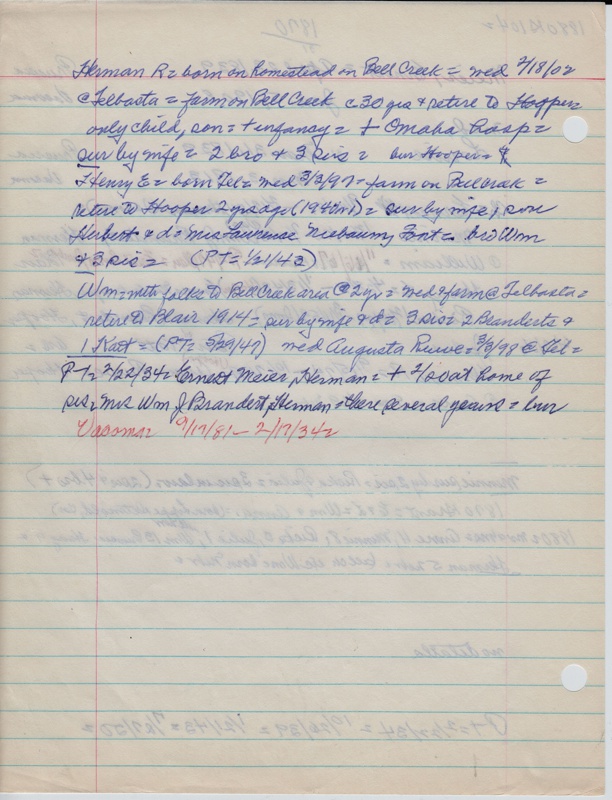 Herman R = born on homestead on Bell Creek = wed 2/18/02
@ Telbasta = farm on Bell Creek c 30 yrs & retire to Hooper
only child, son = + infancy = + Omaha hosp =
sur by wife = 2 bro & 3 sis = bur Hooper =
Henry E = born Tel = wed 3/3/97 = farm on Bell Creek =
retire to Hooper 2 yrs ago = sur by wife, son
Herbert & d = Mrs Lawrence Niebaum, Font = bro Wm
& 3 sis = (PT = 1/21/43)
Wm = with folks to Bell Creek area @ 2 yr = wed & farm @ Telbasta =
retire to Blair 1914 = sur by wife & d = 3 sis = 2 Branderts &
1 Katt = (PT = 5/29/47) wed Augusta = 3/3/98 @ Tel =
PT = 2/22/34 = Ernest Meier, Herman = + 2/20 at home of
sis = Mrs Wm J Brandert, Herman = there several years = bur
9/17/81 - 2/17/34 =